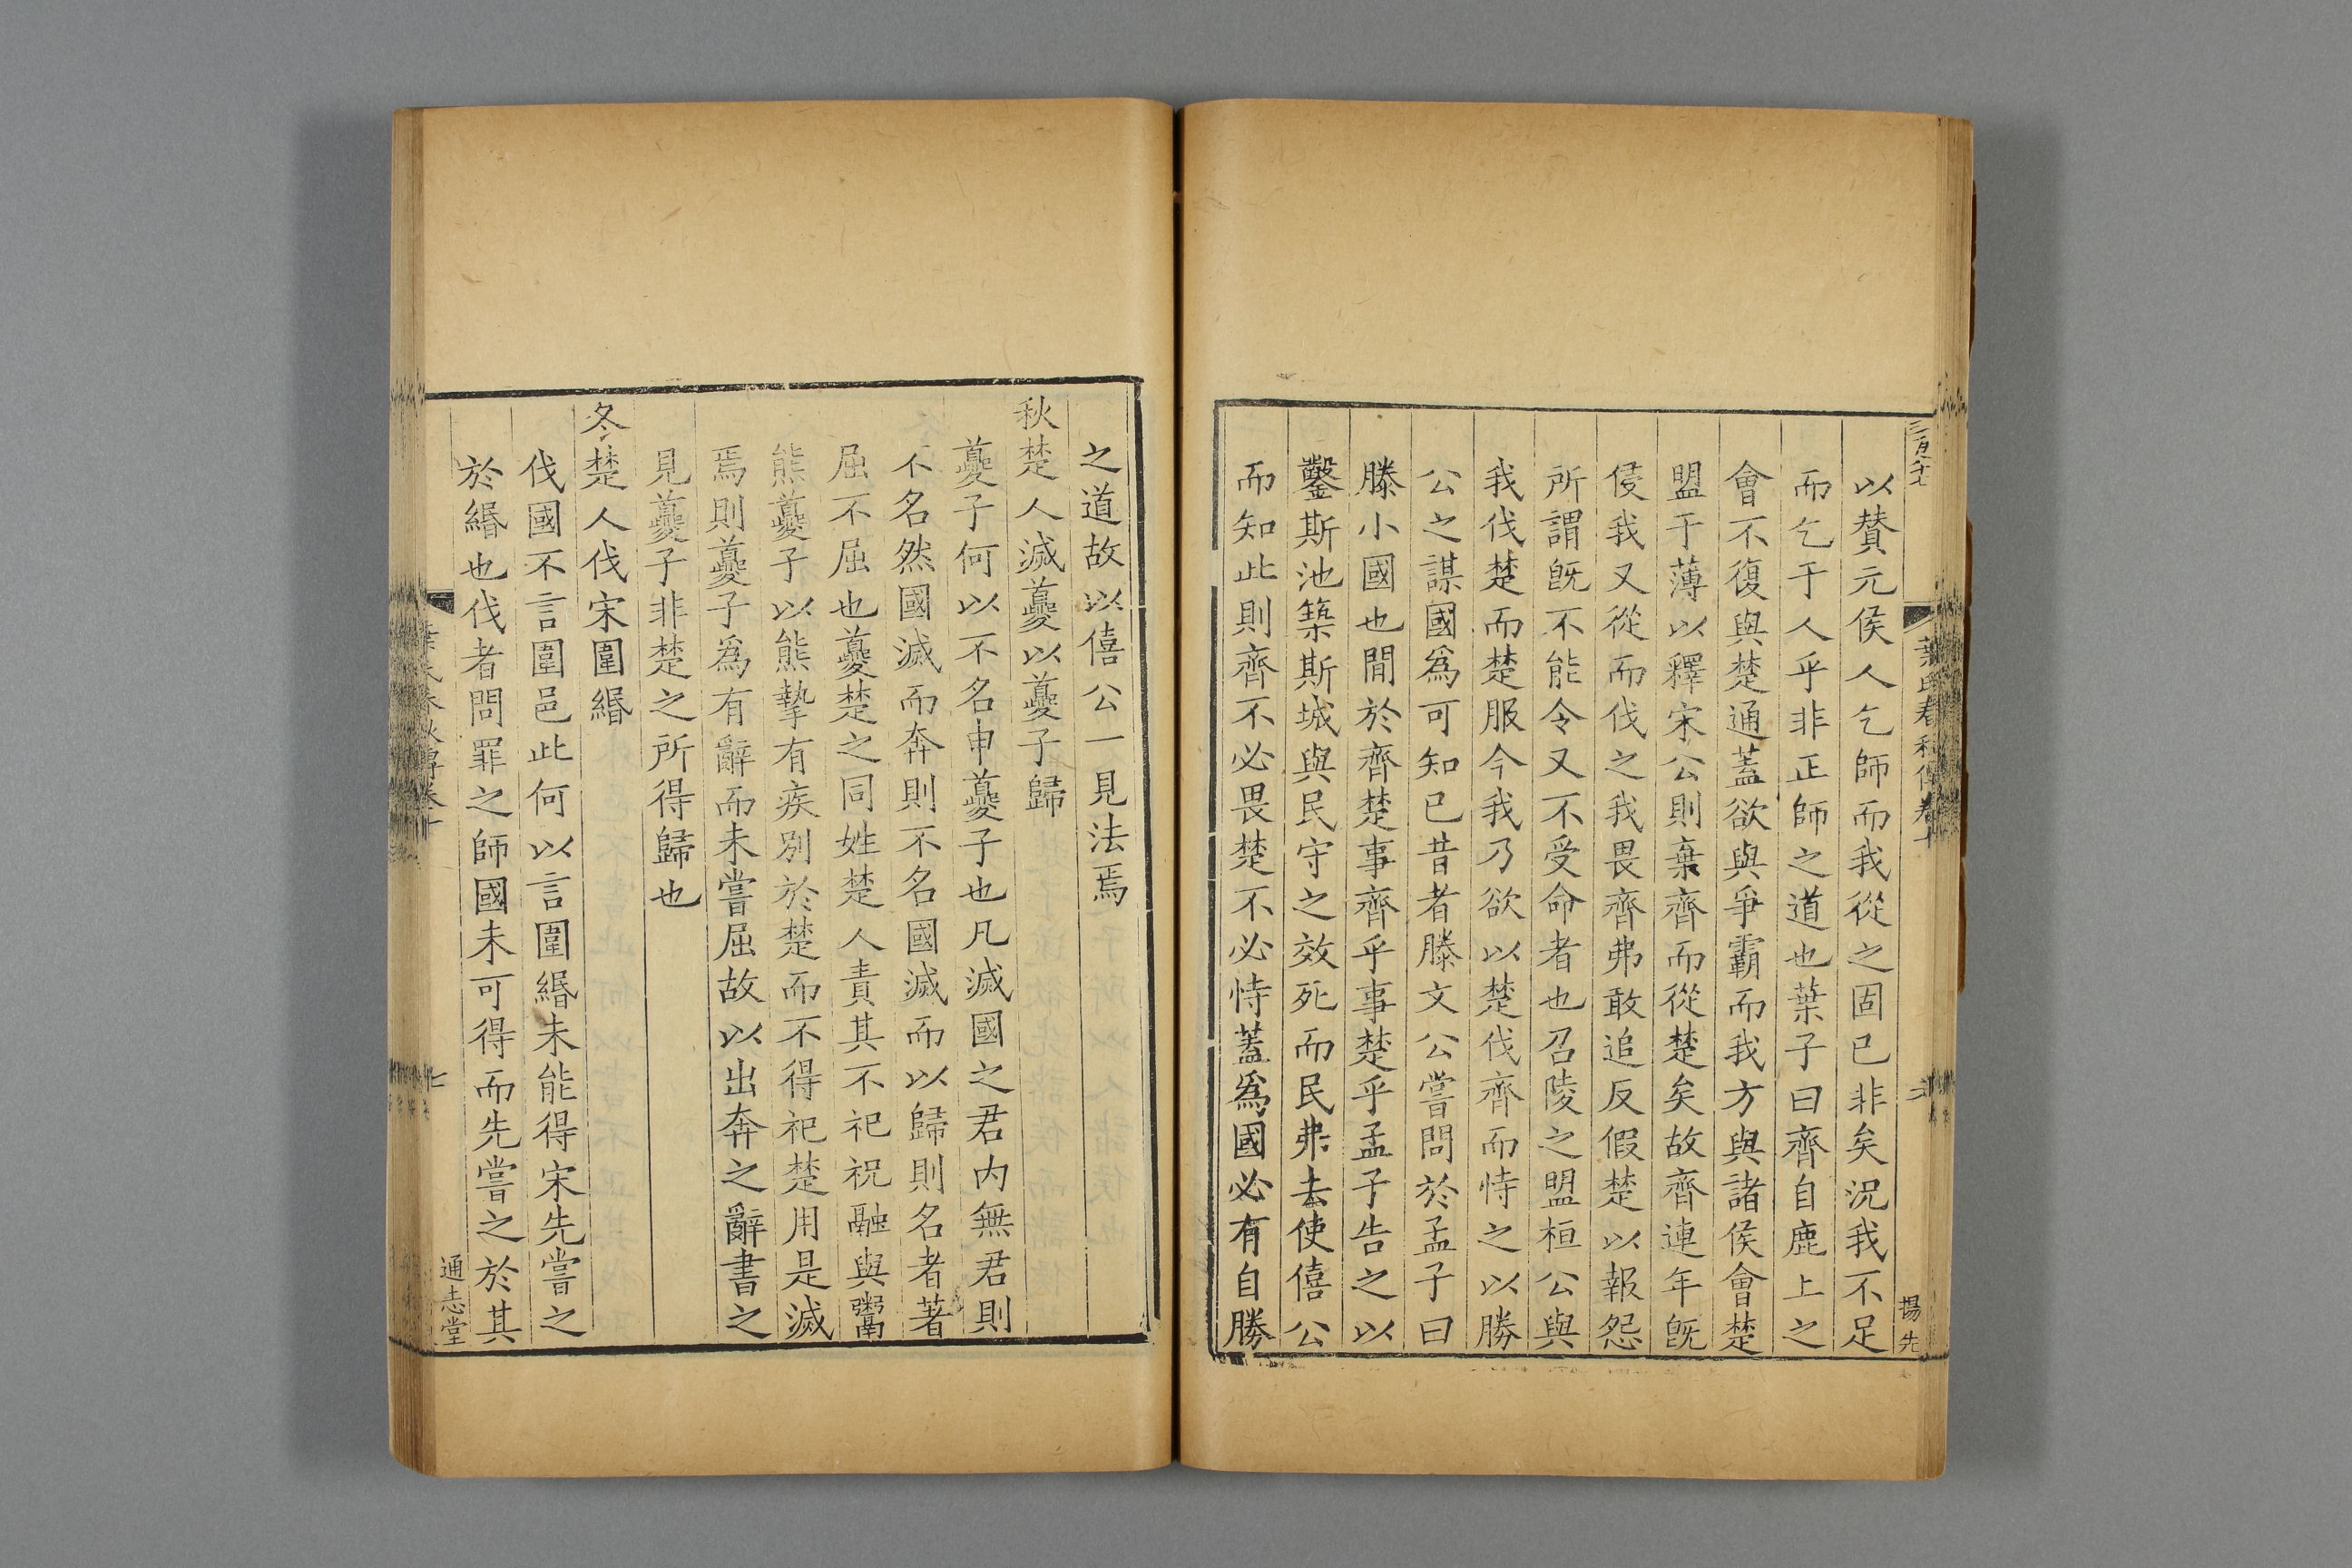 葉氏春秋傳卷十
楊先
以賛元侯人乞師而我從之固已非矣況我不足
而乞于人乎非正師之道也葉子曰齊自鹿上之
會不復與楚通蓋欲與爭霸而我方與諸侯會楚
盟于薄以釋宋公則棄齊而從楚矣故齊連年旣
侵我又從而伐之我畏齊弗敢追反假楚以報怨
所謂旣不能令又不受命者也召陵之盟桓公與
我伐楚而楚服今我乃欲以楚伐齊而恃之以勝
公之謀國爲可知已昔者滕文公嘗問於孟子曰
滕小國也閒於齊楚事齊乎事楚乎孟子告之以
鑿斯池築斯城與民守之效死而民弗去使僖公
而知此則齊不必畏楚不必恃蓋爲國必有自勝
之道故以僖公一見法焉
秋楚人滅夔以夔子歸
夔子何以不名申夔子也凡滅國之君内無君則
不名然國滅而奔則不名國滅而以歸則名者著
屈不屈也夔楚之同姓楚人責其不祀祝融與鬻
熊夔子以熊摯有疾別於楚而不得祀楚用是滅
焉則夔子爲有辭而未嘗屈故以出奔之辭書之
見夔子非楚之所得歸也
冬楚人伐宋圍緡
伐國不言圍邑此何以言圍緡未能得宋先嘗之
於緡也伐者問罪之師國未可得而先嘗之於其
七
通志堂